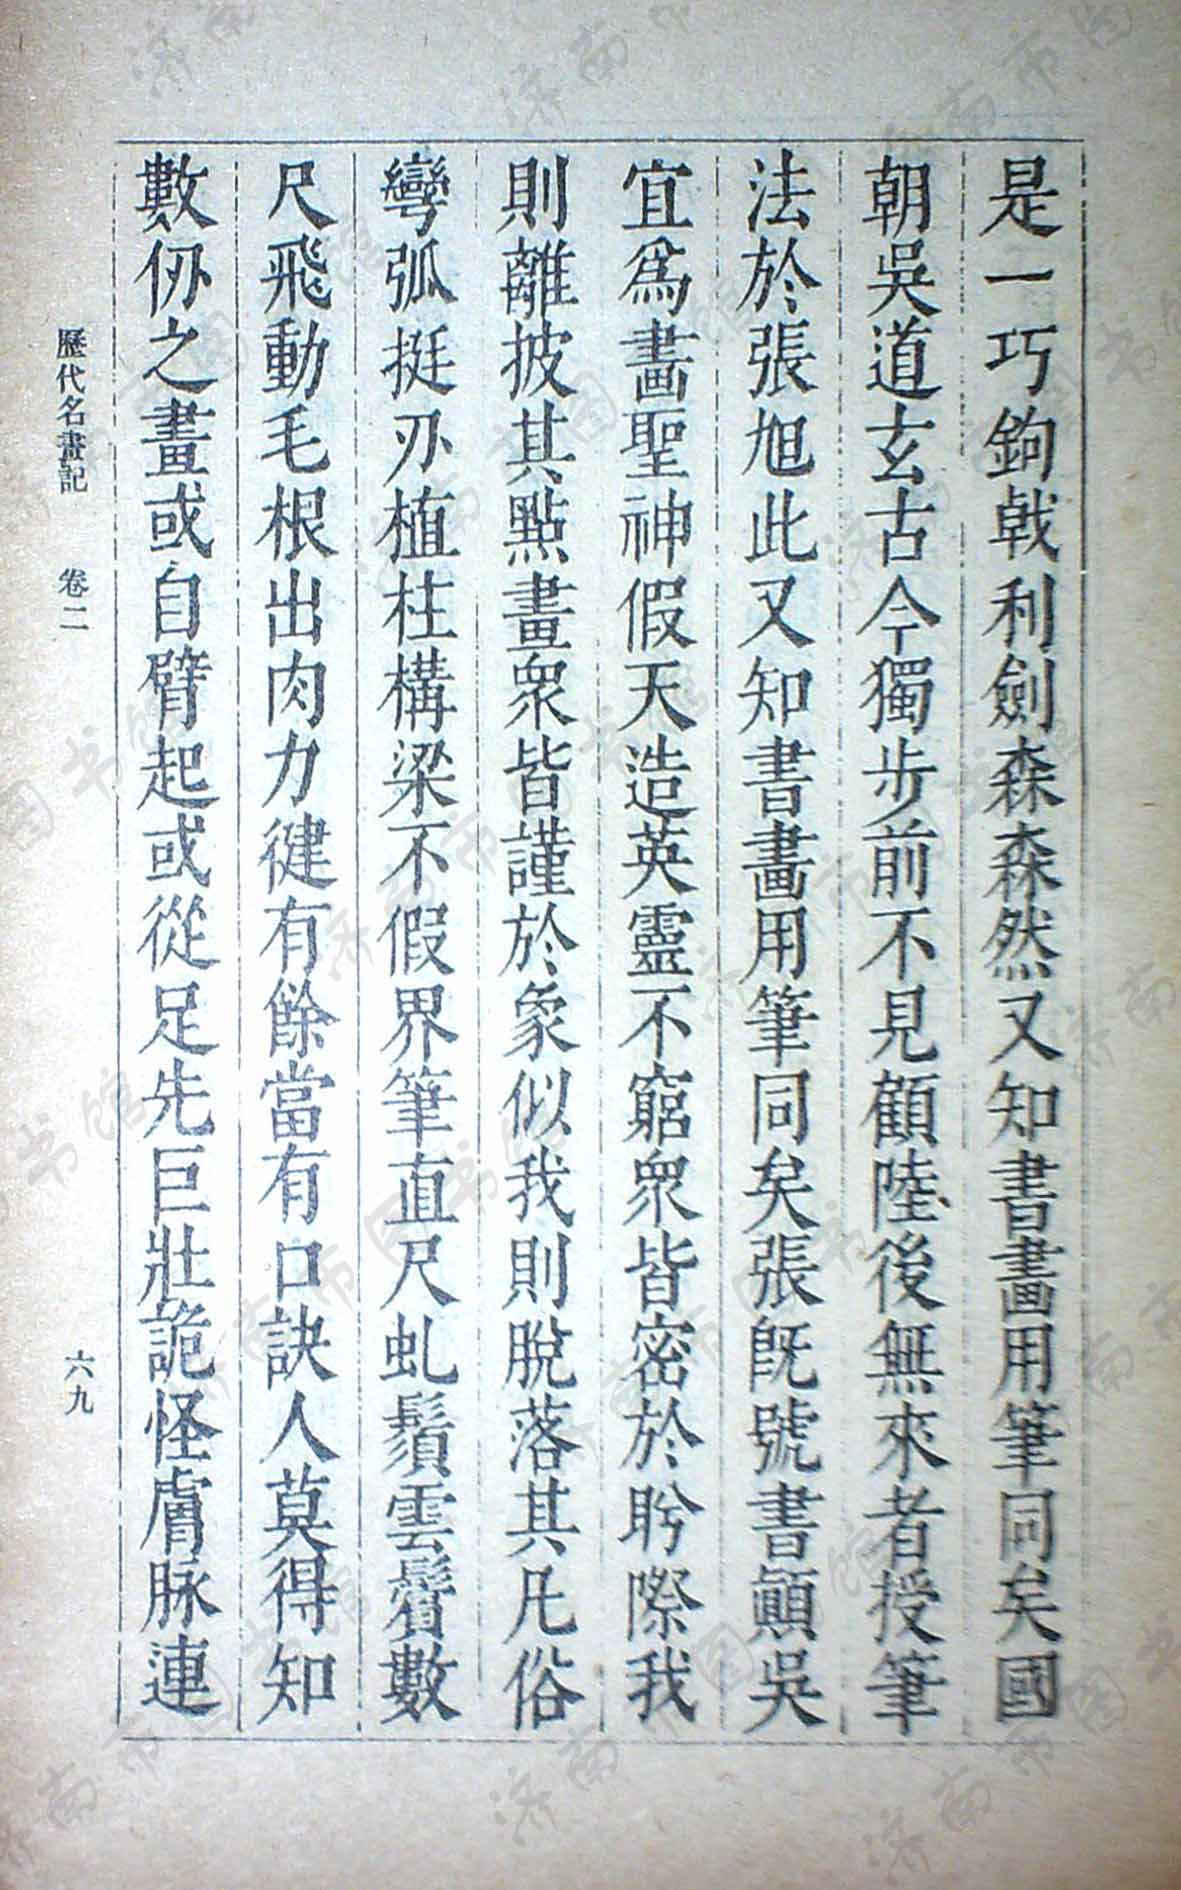 是一巧鉤戟利劍森森然又知書畵用筆同矣國
朝吳道玄古今獨步前不見顧陸後無來者授筆
法於張旭此又知書畵用筆同矣張旣號書顚吳
宜爲畵聖神假天造英靈不窮衆皆密於盻際我
則離披其點畫衆皆謹於象似我則脫落其凡俗
彎弧挺刃植柱構梁不假界筆直尺虬鬚雲鬢數
尺飛動毛根出肉力健有餘當有口訣人莫得知
數仭之畫或自臂起或從足先巨壯詭怪膚脉連
歷代名畫記 卷二 六九
济南市图书馆